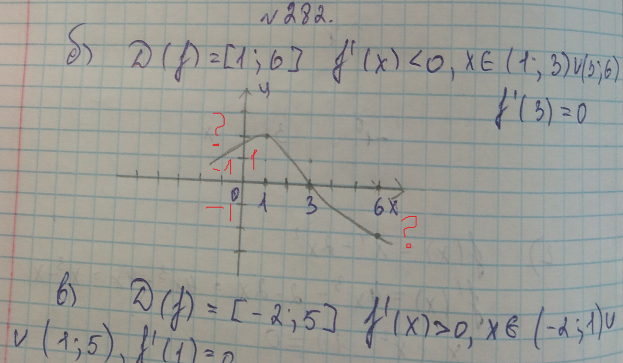 №282.
б) D(f)=[1;6] f'(x)<0, x∈(1;3)∪(3;6)
f'(3)=0
y
?
-1 1
0 1 3 6 x
-1
?
в) D(f)=[-2;5] f'(x)>0, x∈(-2;1)∪
∪(1;5), f'(1)=0